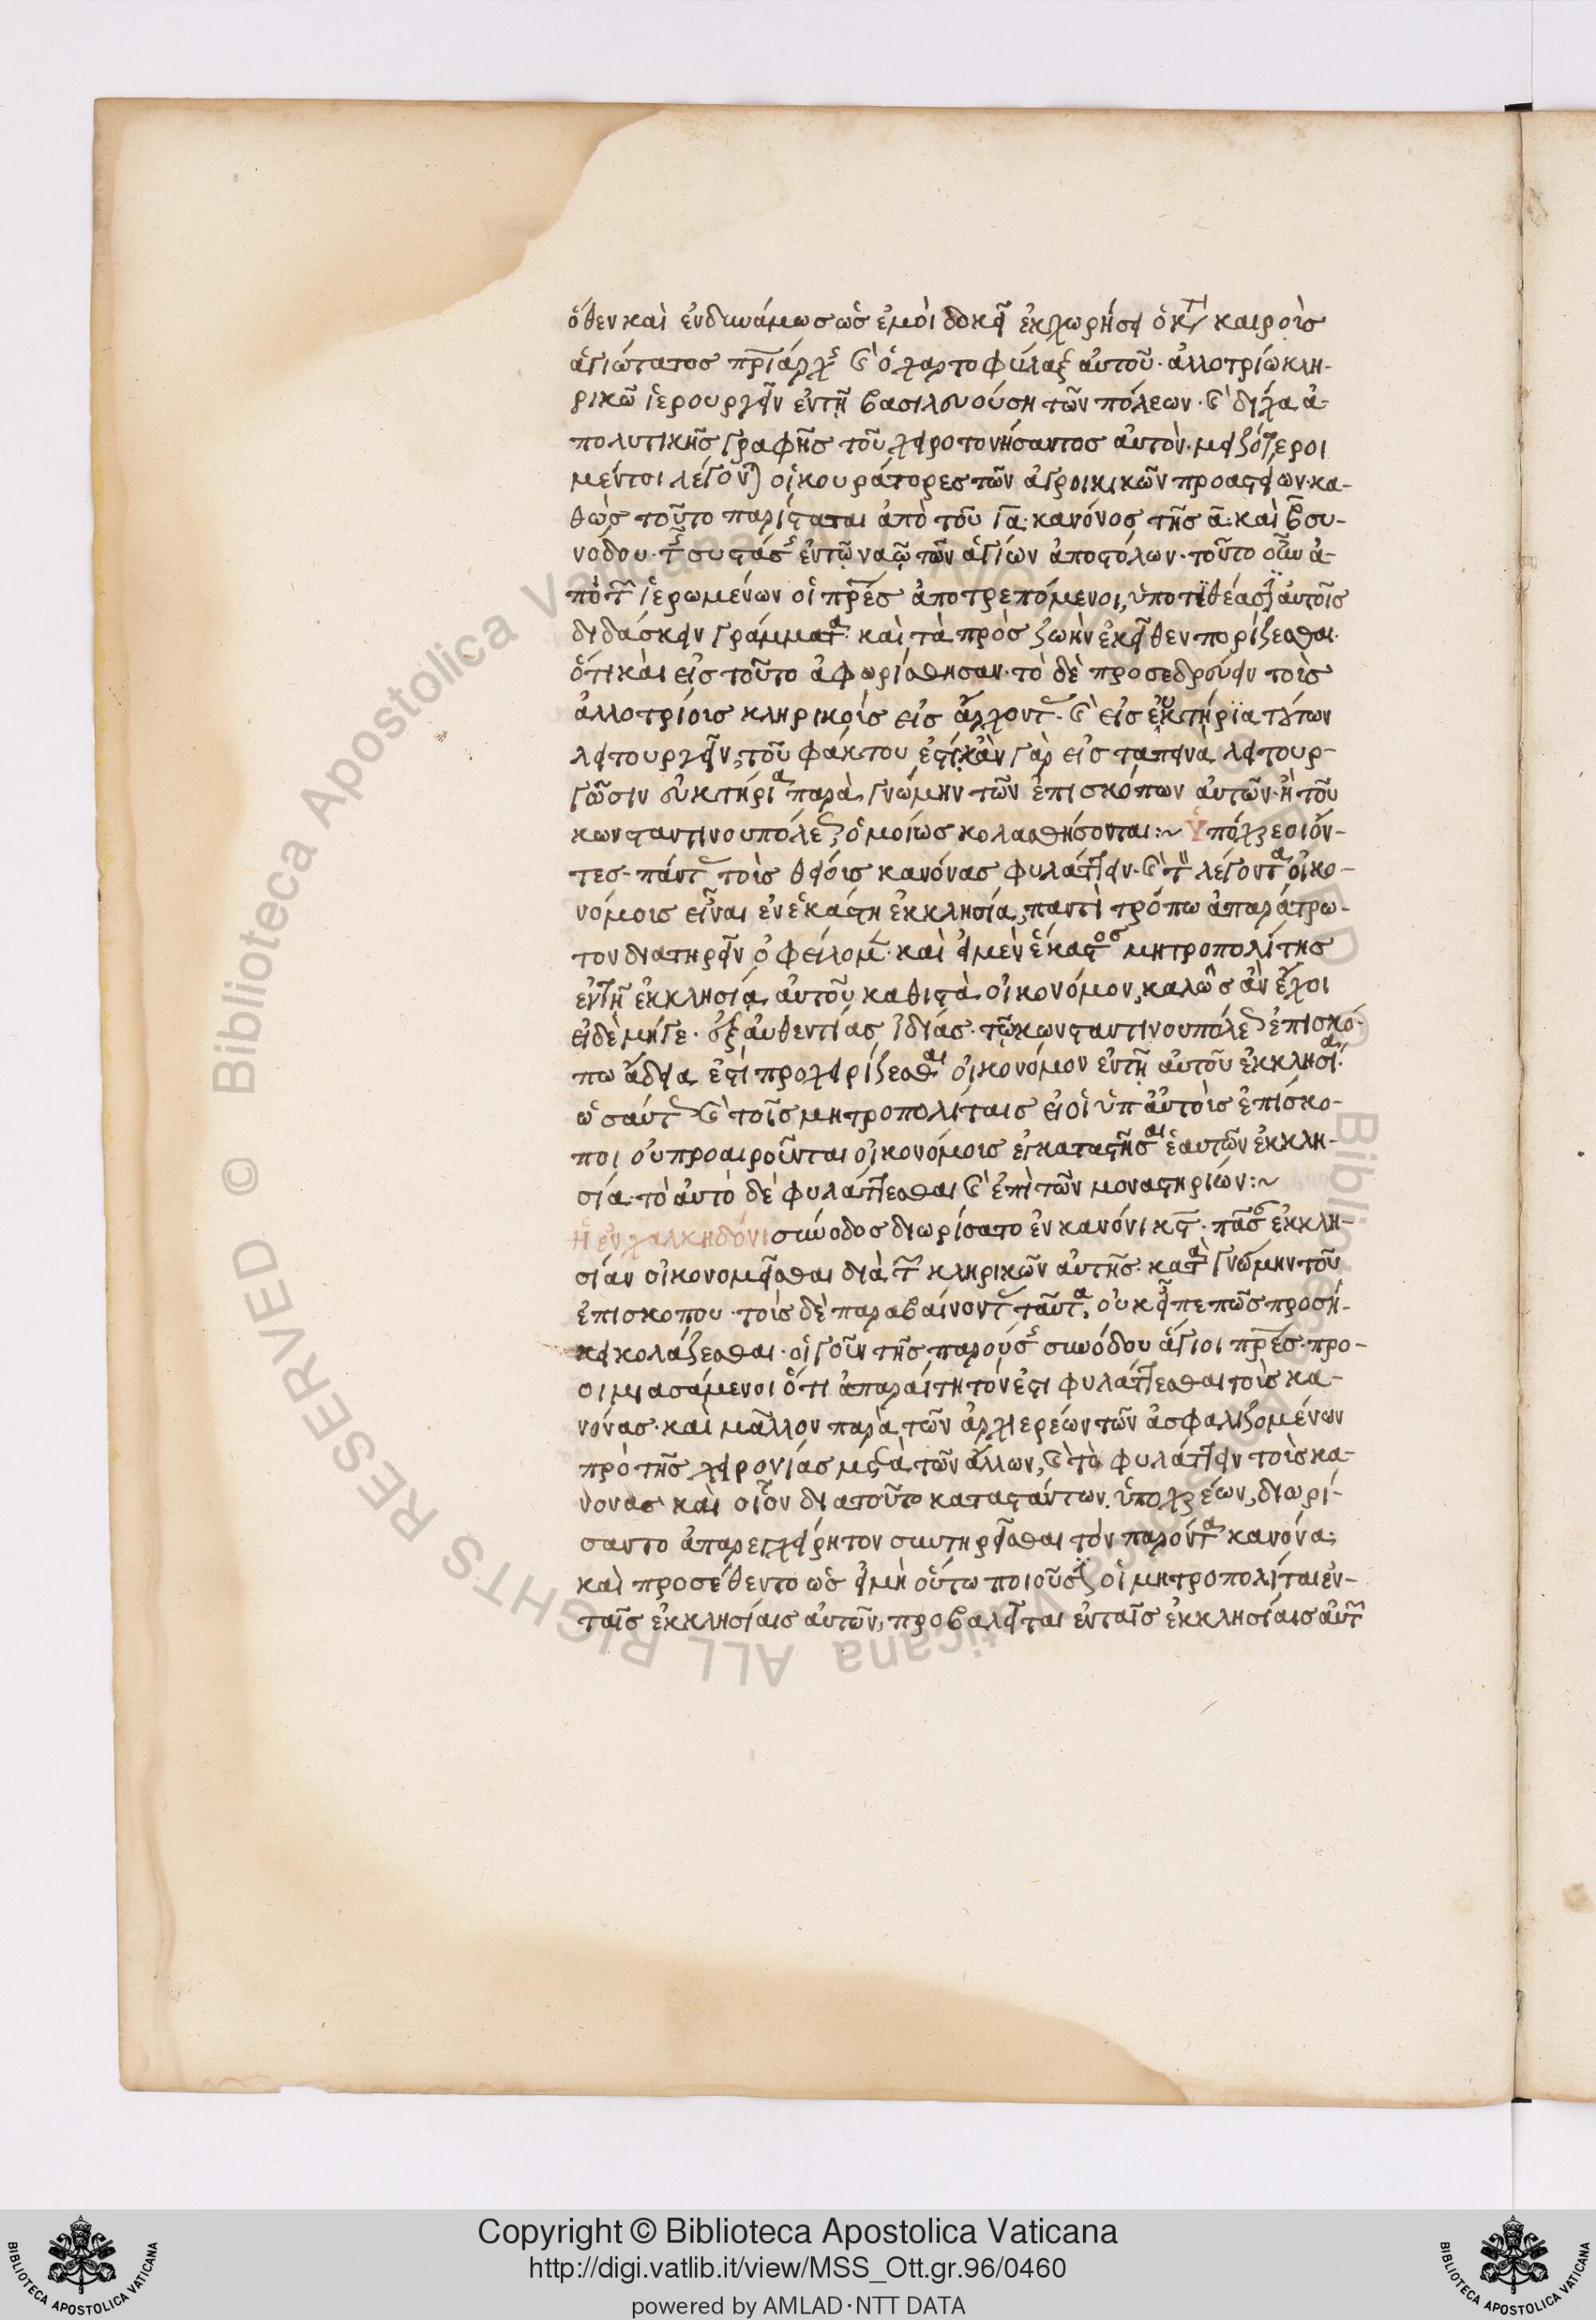 ὅθεν καὶ ἐνδυνάμως ὡς ἐμοὶ δοκεῖ ἐκχωρήσει ὁ κτ καιροὺς
ἁγιώτατος πριάρχ καὶ ὁ χαρτοφύλαξ αὐτοῦ· ἀλλοτρίω κλη-
ρικῶ ἱερουργεῖν ἐν τῇ βασιλευούση τῶν πόλεων· καὶ δίχα ἀ-
πολυτικῆς γραφῆς τοῦ χειροτονήσαντος αὐτὸν· μειζότεροι
μέντοι λέγονται οἱ κουράτορες τῶν ἀγροικικῶν προαστείων· κα-
θὼς τοῦτο παρίσταται ἀπὸ τοῦ ια· κανόνος τῆς α· καὶ β συ-
νόδου· τ συστάσ ἐν τῷ ναῷ τῶν ἁγίων ἀποστόλων· τοῦτο οὖν ἀ-
πὸ τ ἱερωμένων οἱ πρες ἀποτρεπόμενοι, ὑποτιθέασι αὐτοῖς
διδάσκειν γράμματα· καὶ τὰ πρὸς ζωὴν ἐκεῖθεν πορίζεσθαι·
ὅτι καὶ εἰς τοῦτο ἀφωρίσθησαν· τὸ δὲ προσεδρεύειν τοὺς
ἀλλοτρίους κληρικοὺς εἰς ἄρχοντ· καὶ εἰς εὐκτήρϊα τύπων
λειτουργεῖν, τοῦ φάκτου ἐστί· κἂν γὰρ εἰς ταπεινὰ λειτουρ-
γῶσιν εὐκτήρια παρὰ γνώμην τῶν ἐπισκόπων αὐτῶν· ἢ τοῦ
κωνσταντινουπόλε, ὁμοίως κολασθήσονται:~ Ὑπόχρεοι ὄν-
τες· πάντ τοὺς θείους κανόνας φυλάττειν· καὶ τ λέγοντα οἰκο-
νόμους εἶναι ἐν ἑκάστη ἐκκλησία, παντὶ τρόπω ἀπαράτρω-
τον διατηρεῖν ὀφείλομ· καὶ εἰ μὲν ἕκαστος μητροπολίτης
ἐν τῇ ἐκκλησία αὐτοῦ καθιστᾶ οἰκονόμον, καλῶς ἂν ἔχοι
εἰ δὲ μήγε· ἐξ αὐθεντίας ἰδίας· τῷ κωνσταντινουπόλε ἐπισκό-
πω ἄδεια ἐστὶ προχειρίζεσθαι οἰκονόμον ἐν τῇ αὐτοῦ ἐκκλησία·
ὡσαύτ καὶ τοῖς μητροπολίταις εἰ οἱ ὑπ αὐτοὺς ἐπίσκο-
ποι οὐ προαιροῦνται οἰκονόμους ἐγκαταστῆσαι ἑαυτῶν ἐκκλη-
σία· τὸ αὐτὸ δὲ φυλάττεσθαι καὶ ἐπὶ τῶν μοναστηρίων:~
Ἡ ἐν χαλκηδόνι σύνοδος διωρίσατο ἐν κανόνι κϛ· πᾶσ ἐκκλη-
σίαν οἰκονομεῖσθαι διὰ τ κληρικῶν αὐτῆς· κατὰ γνώμην τοῦ
ἐπισκόπου· τοὺς δὲ παραβαίνοντ ταῦτα, οὐκ εἶπε πῶς προσή-
κει κολάζεσθαι· οἱ γοῦν τῆς παρούσ συνόδου ἅγιοι πρες· προ-
οιμιασάμενοι ὅτι ἀπαραίτητόν ἐστι φυλάττεσθαι τοὺς κα-
νόνας· καὶ μᾶλλον παρὰ τῶν ἀρχιερέων τῶν ἀσφαλιζομένων
πρὸ τῆς χειρονίας μετὰ τῶν ἄλλων, καὶ τὸ φυλάττειν τοὺς κα-
νόνας καὶ οἷον διατοῦτο καταστάντων ὑποχρέων, διωρί-
σαντο ἀπαρεγχείρητον συντηρεῖσθαι τὸν παρόντα κανόνα·
καὶ προσέθεντο ὡς εἰ μὴ οὕτω ποιοῦσι οἱ μητροπολίται ἐν-
ταῖς ἐκκλησίαις αὐτῶν, προβαλεῖται ἐν ταῖς ἐκκλησίαις αὐτ
© Biblioteca Apostolica Vaticana ALL RIGHTS RESERVED
Copyright © Biblioteca Apostolica Vaticana
http://digi.vatlib.it/view/MSS_Ott.gr.96/0460
powered by AMLAD·NTT DATA
BIBLIOTECA APOSTOLICA VATICANA
BIBLIOTECA APOSTOLICA VATICANA